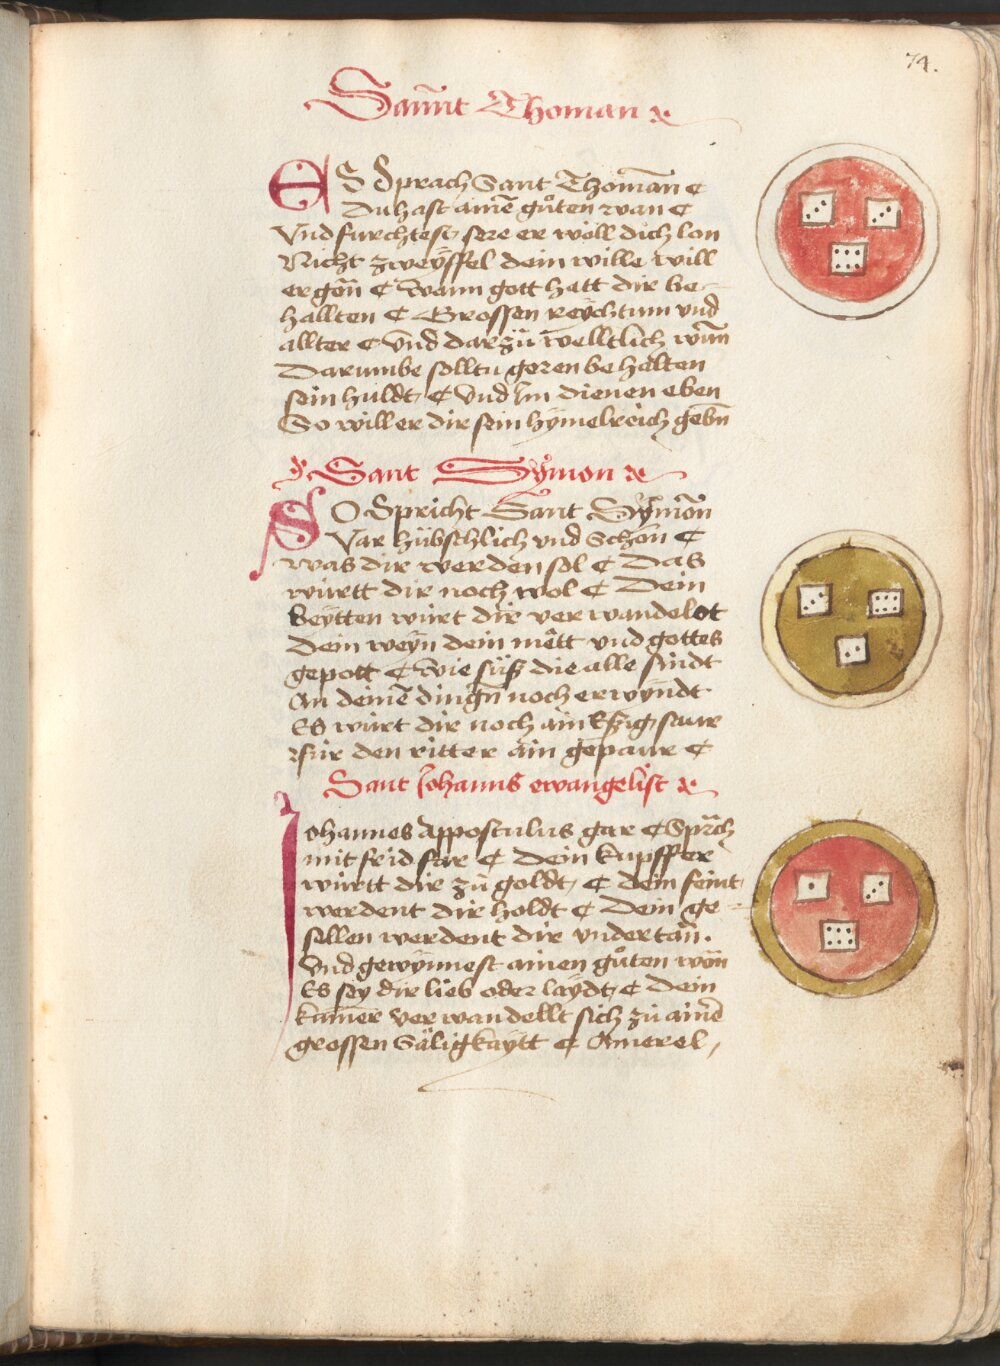 74.
Sannt Thoman
ES Sprach Sant Thoman
Du hast ainē gůten wan
Vnd furchtest sere er woll dich lon
Nicht zweÿffel dein wille will
ergān Wann gott hett dir be-
hallten Grossen reÿchtum vnd
allter Vnd darzů welltlich wūn
Darumbe solltu geren behalten
sein huldt Vnd Im dienen eben
So will er dir sein hÿmelreich gebn̄
Sant Sÿmon
SO Spricht Sant Sÿmōn
Var hübschlich vnd Schōn
was dir werden sol Das
württ dir noch wol Dein
beÿtten würt dir verwandelot
Dein weÿn dein mett vnd gottes
gepott Wie süß die alle sindt
An deinē dingn̄ noch erwÿndt
Es würt dir noch ain Eßzig saur
für den ritter ain gepaur
Sant Johanns ewangelist
Johannes Apposculus gar Sprāch
mit frid far Dein kupffer
württ dir zů goldt dein feint
werdent dir holdt Dein ge-
sellen werdent dir vndertān.
Vnd gewÿnnest ainen gůten wōn
Es seÿ dir lieb oder laÿdt Dein
kumer verwandellt sich zů ainē
grossen Säligkaÿtt Amerel,